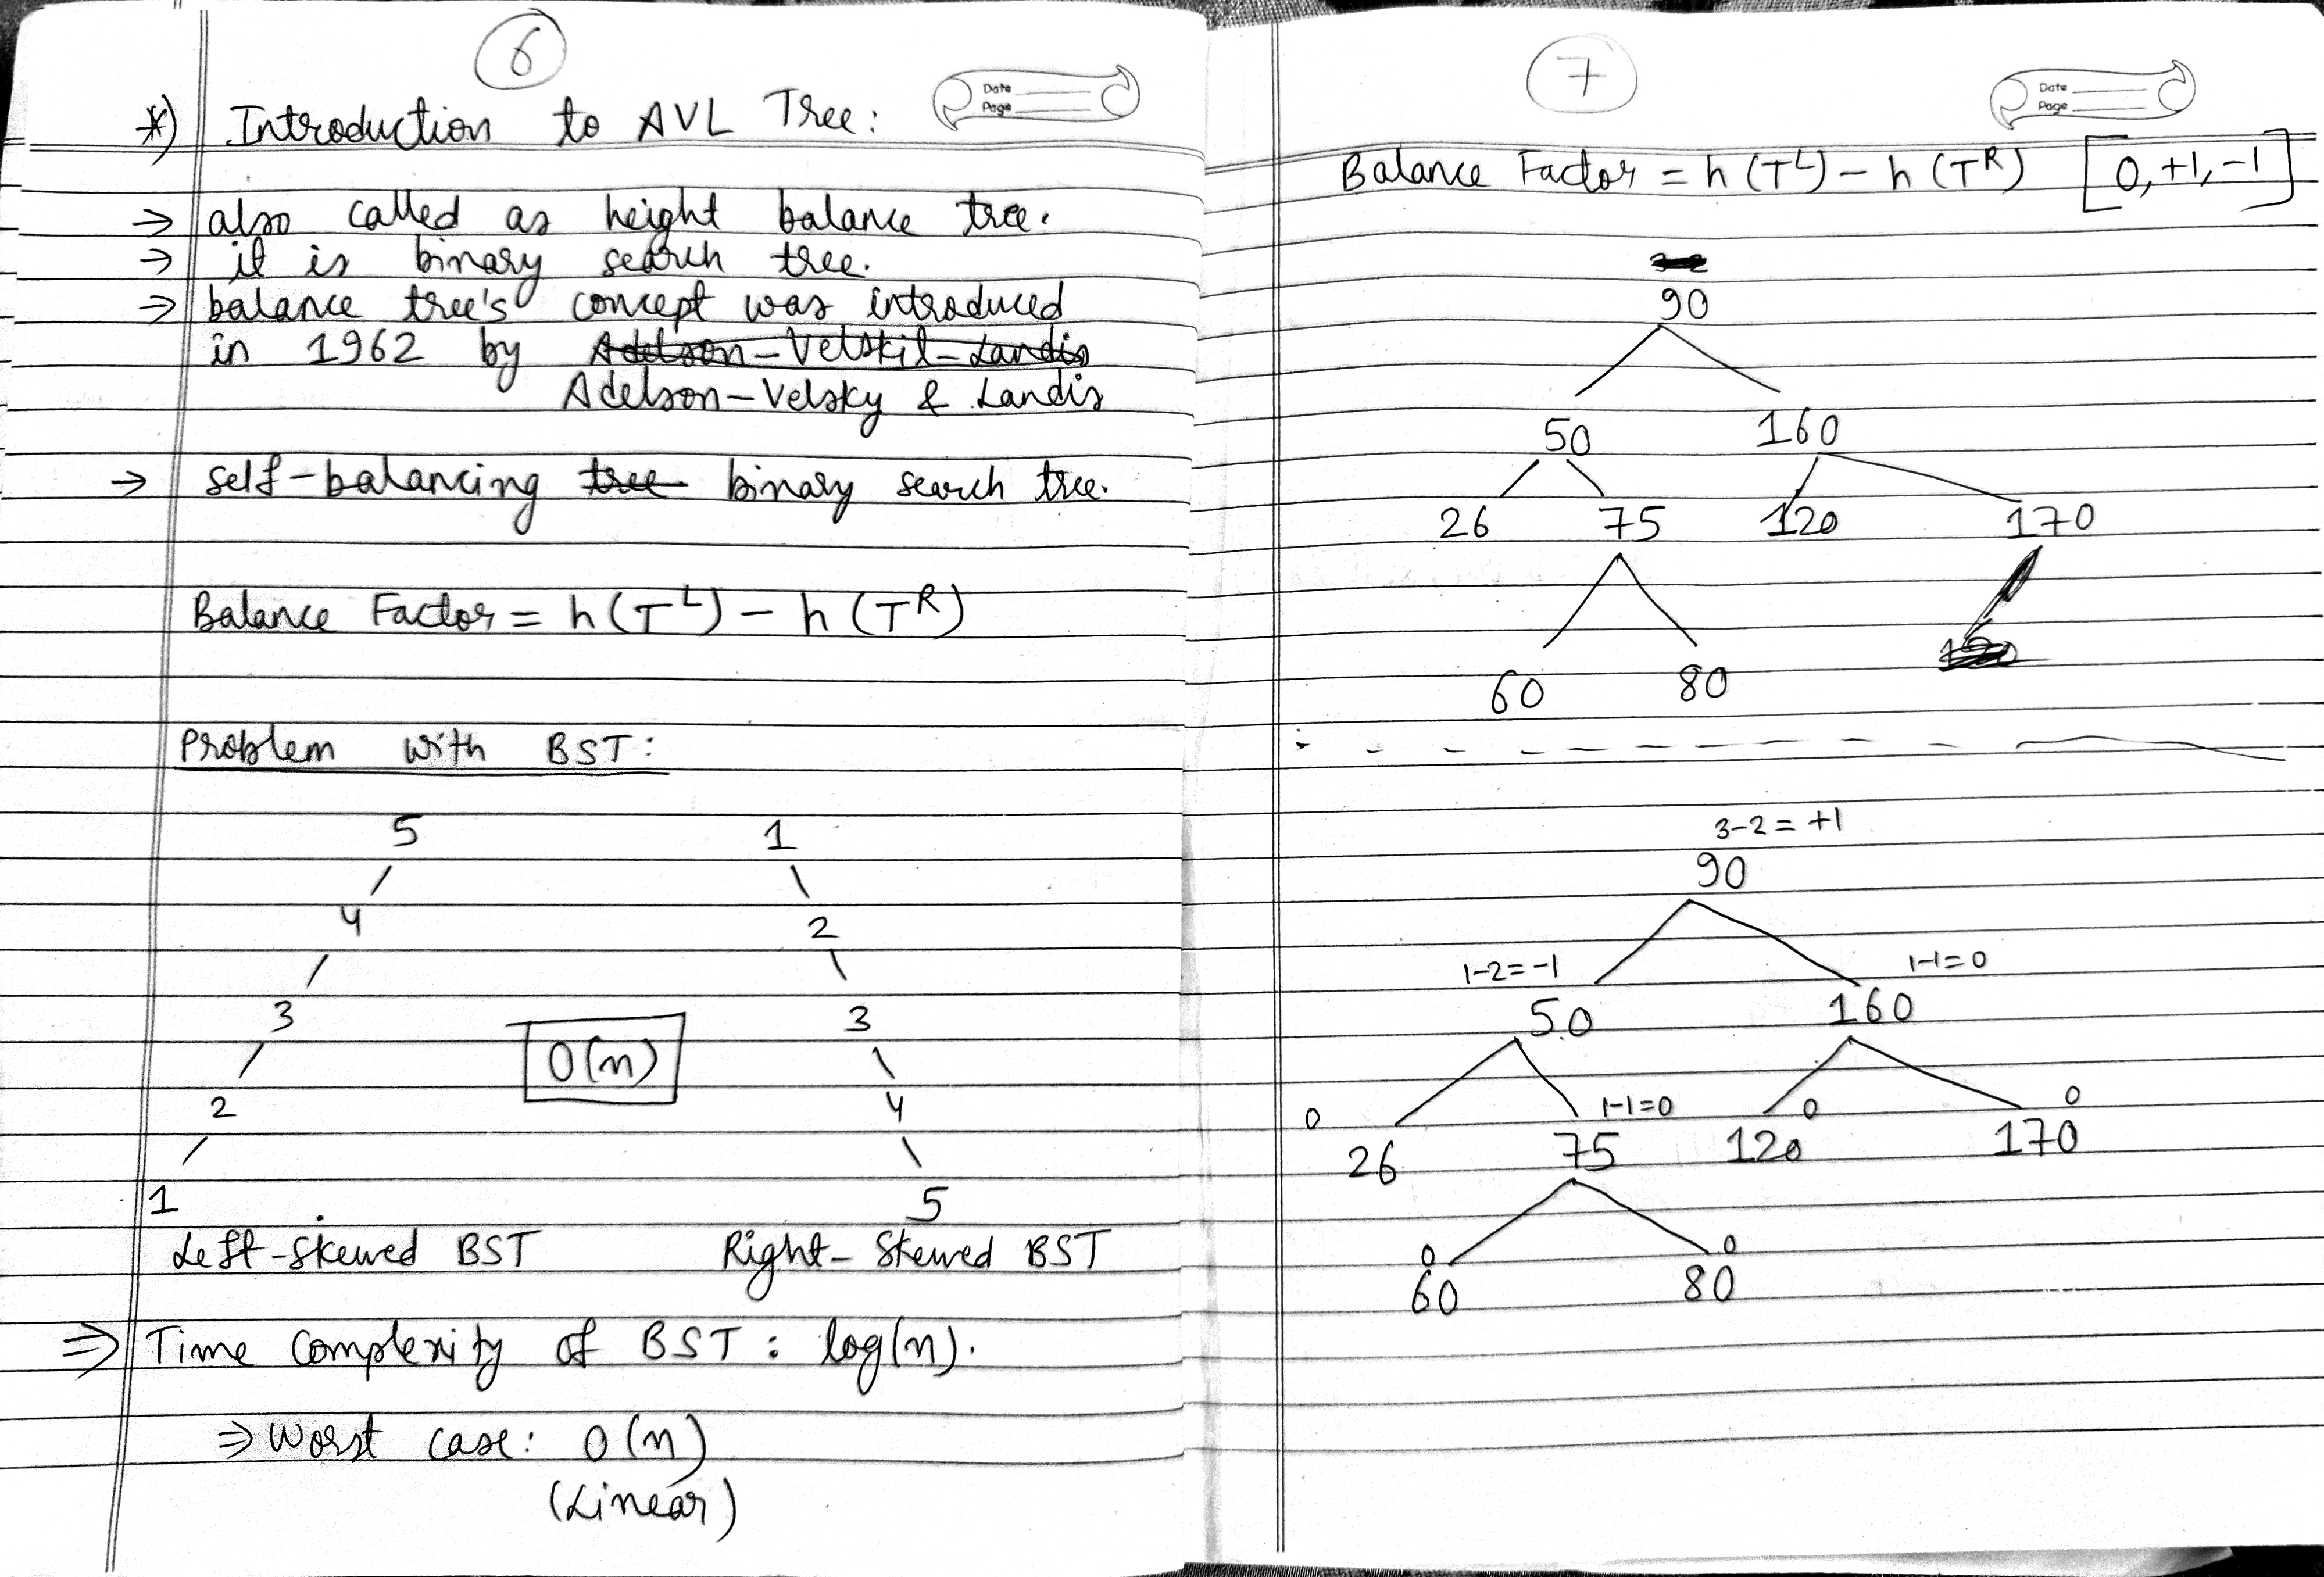 6
Date
Page
*) Introduction to AVL Tree:
→ also called as height balance tree.
→ it is binary search tree.
→ balance tree's concept was introduced
in 1962 by Adelson-Velskil-Landis
Adelson-Velsky & Landis
→ self-balancing tree binary search tree.
Balance Factor = h(T^L) - h(T^R)
Problem with BST:
5 1
4 2
3 3
O(n)
2 4
1 5
Left-Skewed BST Right-Skewed BST
⇒ Time Complexity of BST: log(n).
⇒ Worst case: O(n)
(Linear)
7
Date
Page
Balance Factor = h(T^L) - h(T^R) [0,+1,-1]
90
50 160
26 75 120 170
60 80
3-2=+1
90
1-2=-1 1-1=0
50 160
0 1-1=0 0 0
26 75 120 170
0 0
60 80